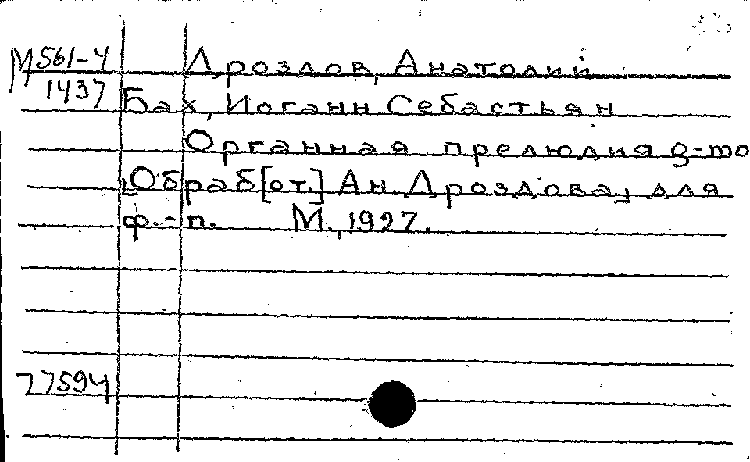 М561-4 Дроздов, Анатолий
1437 Бах, Иоганн Себастьян
Органная прелюдия g-mo
[Обраб[от.] Ан. Дроздова] для
ф.-п. М., 1927.
77594